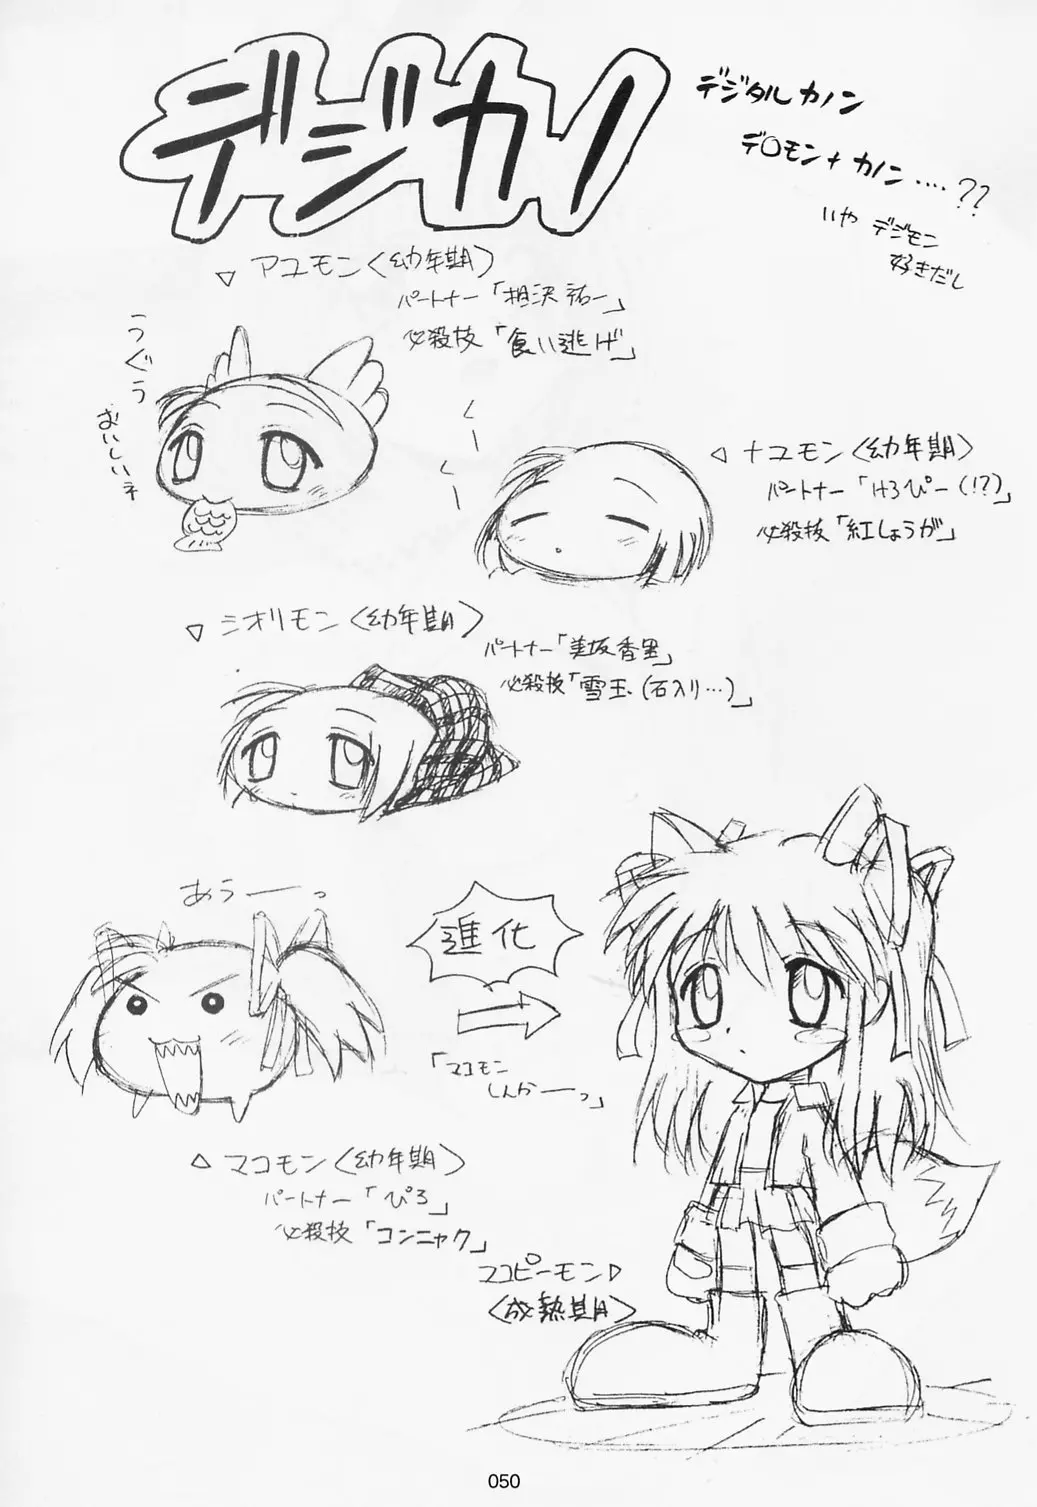 デジカノ
デジタルカノン
デ○モン+カノン....??
いや デジモン
好きだし
▽ アユモン〈幼年期〉
パートナー「相沢祐一」
必殺技「食い逃げ」
うぐぅ
おいしいネ
くー
くー
◁ ナユモン〈幼年期〉
パートナー「けろぴー(!?)」
必殺技「紅しょうが」
▽ シオリモン〈幼年期〉
パートナー「美坂香里」
必殺技「雪玉(石入り…)」
あうーっ
進化
「マコモン
しんかーっ」
△ マコモン〈幼年期〉
パートナー「ぴろ」
必殺技「コンニャク」
マコピーモン▷
〈成熟期〉
050